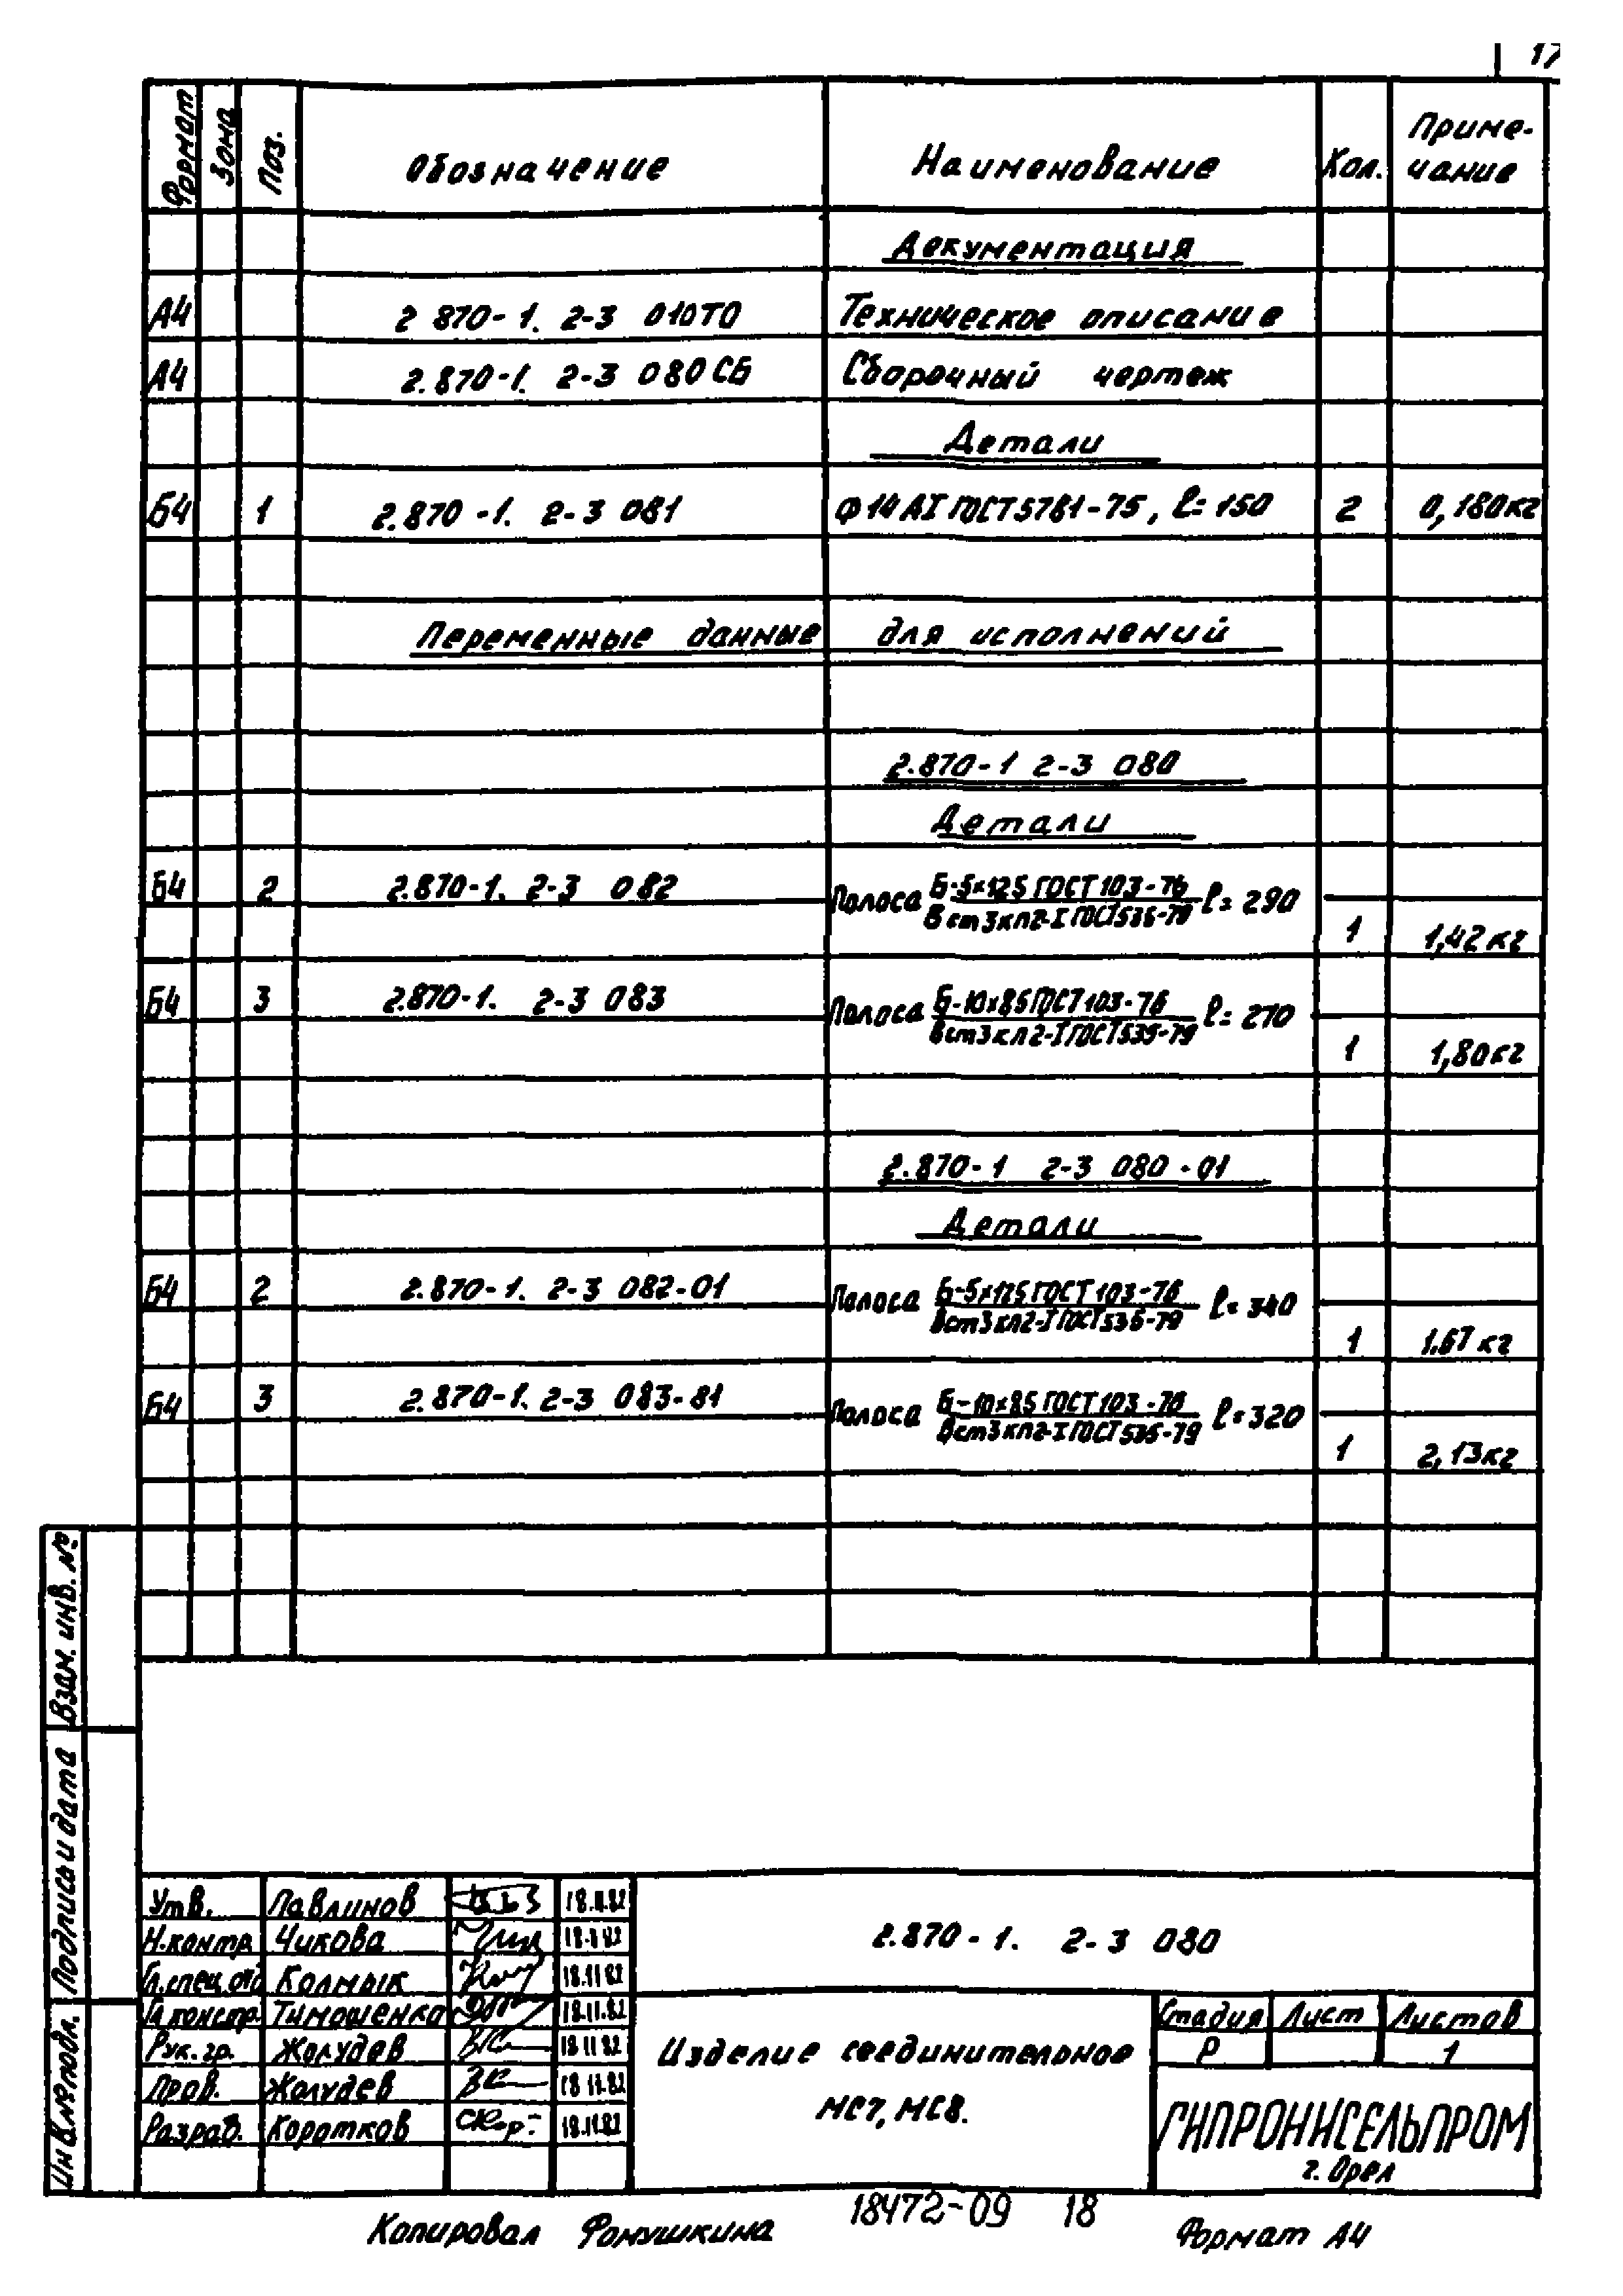 17
Формат Зона Поз. Обозначение Наименование Кол. Приме-
чание
Документация
А4 2 870-1. 2-3 010ТО Техническое описание
А4 2.870-1. 2-3 080СБ Сборочный чертеж
Детали
Б4 1 2.870-1. 2-3 081 Ф14АI ГОСТ5781-75, l=150 2 0,180кг
Переменные данные для исполнений
2.870-1 2-3 080
Детали
Б4 2 2.870-1. 2-3 082 Полоса Б-5×125 ГОСТ103-76 l=290
Вст3кп2-I ГОСТ535-79
1 1,42кг
Б4 3 2.870-1. 2-3 083 Полоса Б-10×85 ГОСТ103-76 l=270
Вст3кп2-I ГОСТ535-79
1 1,80кг
2.870-1 2-3 080-01
Детали
Б4 2 2.870-1. 2-3 082-01 Полоса Б-5×125 ГОСТ103-76 l=340
Вст3кп2-I ГОСТ535-79
1 1.67кг
Б4 3 2.870-1. 2-3 083-81 Полоса Б-10×85 ГОСТ103-76 l=320
Вст3кп2-I ГОСТ535-79
1 2,13кг
Взам. инв. №
Подпись и дата
Инв.№подл.
Утв. Павлинов 18.11.82
Н.контр. Чикова
Гл.спец.отд Колмык 18.11.82
Гл.констр. Тимошенко 18.11.82
Рук.гр. Жолудев 18.11.82
Пров. Жолудев 18.11.82
Разраб. Коротков 18.11.82
2.870-1. 2-3 080
Изделие соединительное
МС7, МС8.
Стадия Лист Листов
Р 1
ГИПРОНИСЕЛЬПРОМ
г. Орел
Копировал Фомушкина 18472-09 18 Формат А4